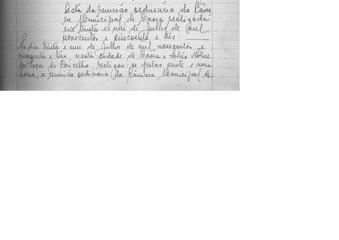 Acta da reunião ordinária da Câma
ra Municipal de Évora realizada
no dia vinte e um de Julho de mil
novecentos e cincoenta e três:
No dia vinte e um de Julho de mil novecentos e
cincoenta e três, nesta cidade de Évora e Salão Nobre
dos Paços do Concelho, realizou-se pelas vinte e uma
horas, a reunião ordinária da Câmara Municipal de